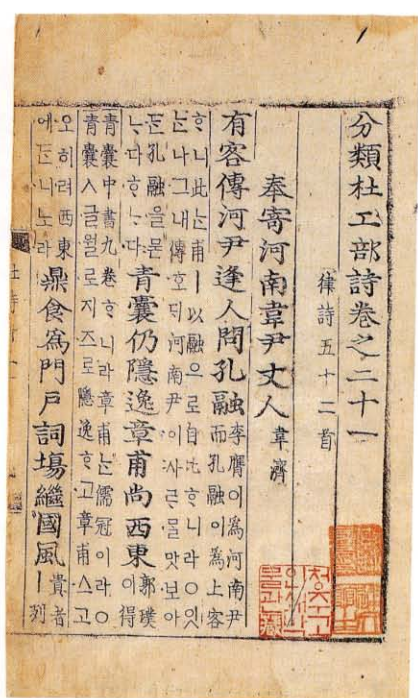 分類杜工部詩卷之二十一
律詩五十二首
奉寄河南韋尹丈人 韋濟
有客傳河尹逢人問孔融 李膺이為河南尹
而孔融이為上客
ᄒᆞ니此ᄂᆞᆫ甫ㅣ以融으로自比ᄒᆞ니라○잇
ᄂᆞᆫ나그내傳호ᄃᆡ河南尹이사ᄅᆞᄆᆞᆯ맛보아
孔融을묻
ᄂᆞ다ᄒᆞᄂᆞ다
青囊仍隱逸章甫尚西東 郭璞
이得
青囊中書九卷ᄒᆞ니라章甫ᄂᆞᆫ儒冠이라○
青囊ㅅ글월로지즈로隱逸ᄒᆞ고章甫스고
오히려西東
에ᄃᆞᆫ니노라
鼎食為門戶詞場繼國風 貴者
ㅣ列